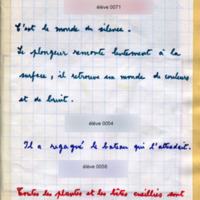 élève 0071
C'est le monde du silence.
Le plongeur remonte lentement à la
surface, il retrouve un monde de couleurs
et de bruit.
élève 0054
Il a regagné le bateau qui l'attendait.
élève 0058
Toutes les plantes et les bêtes cueillies sont